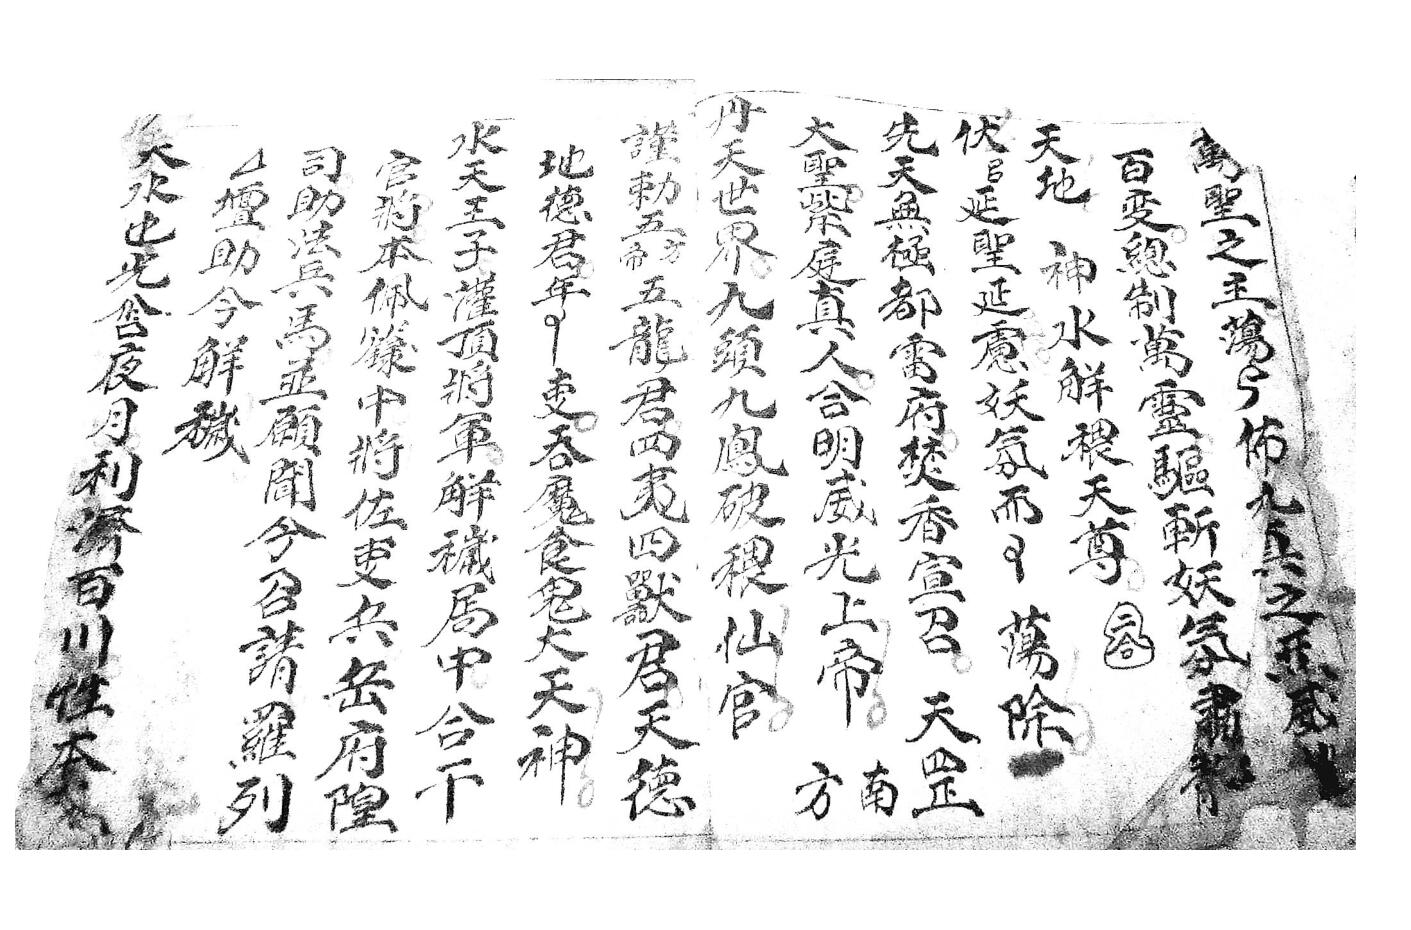 萬聖之主蕩〻佈九真之炁威
百変總制萬靈驅斬妖氛肅
天地　神水解穢天尊
伏㠯延聖延處妖氛而　蕩除
先天無極都雷府焚香宣召　天罡
大聖紫庭真人合明威光上帝　南方
丹天世界九頭九鳳破穢仙官
謹勅五方帝五龍君四夷四獸君天德
地德君年　吏吞魔食鬼大天神
水天王子灌頂將軍解穢局中合干
官將本佩籙中將佐吏兵岳府隍
司助法兵馬並願聞今召請羅列
壇助今解穢
夫水也光含夜月利濟百川性本